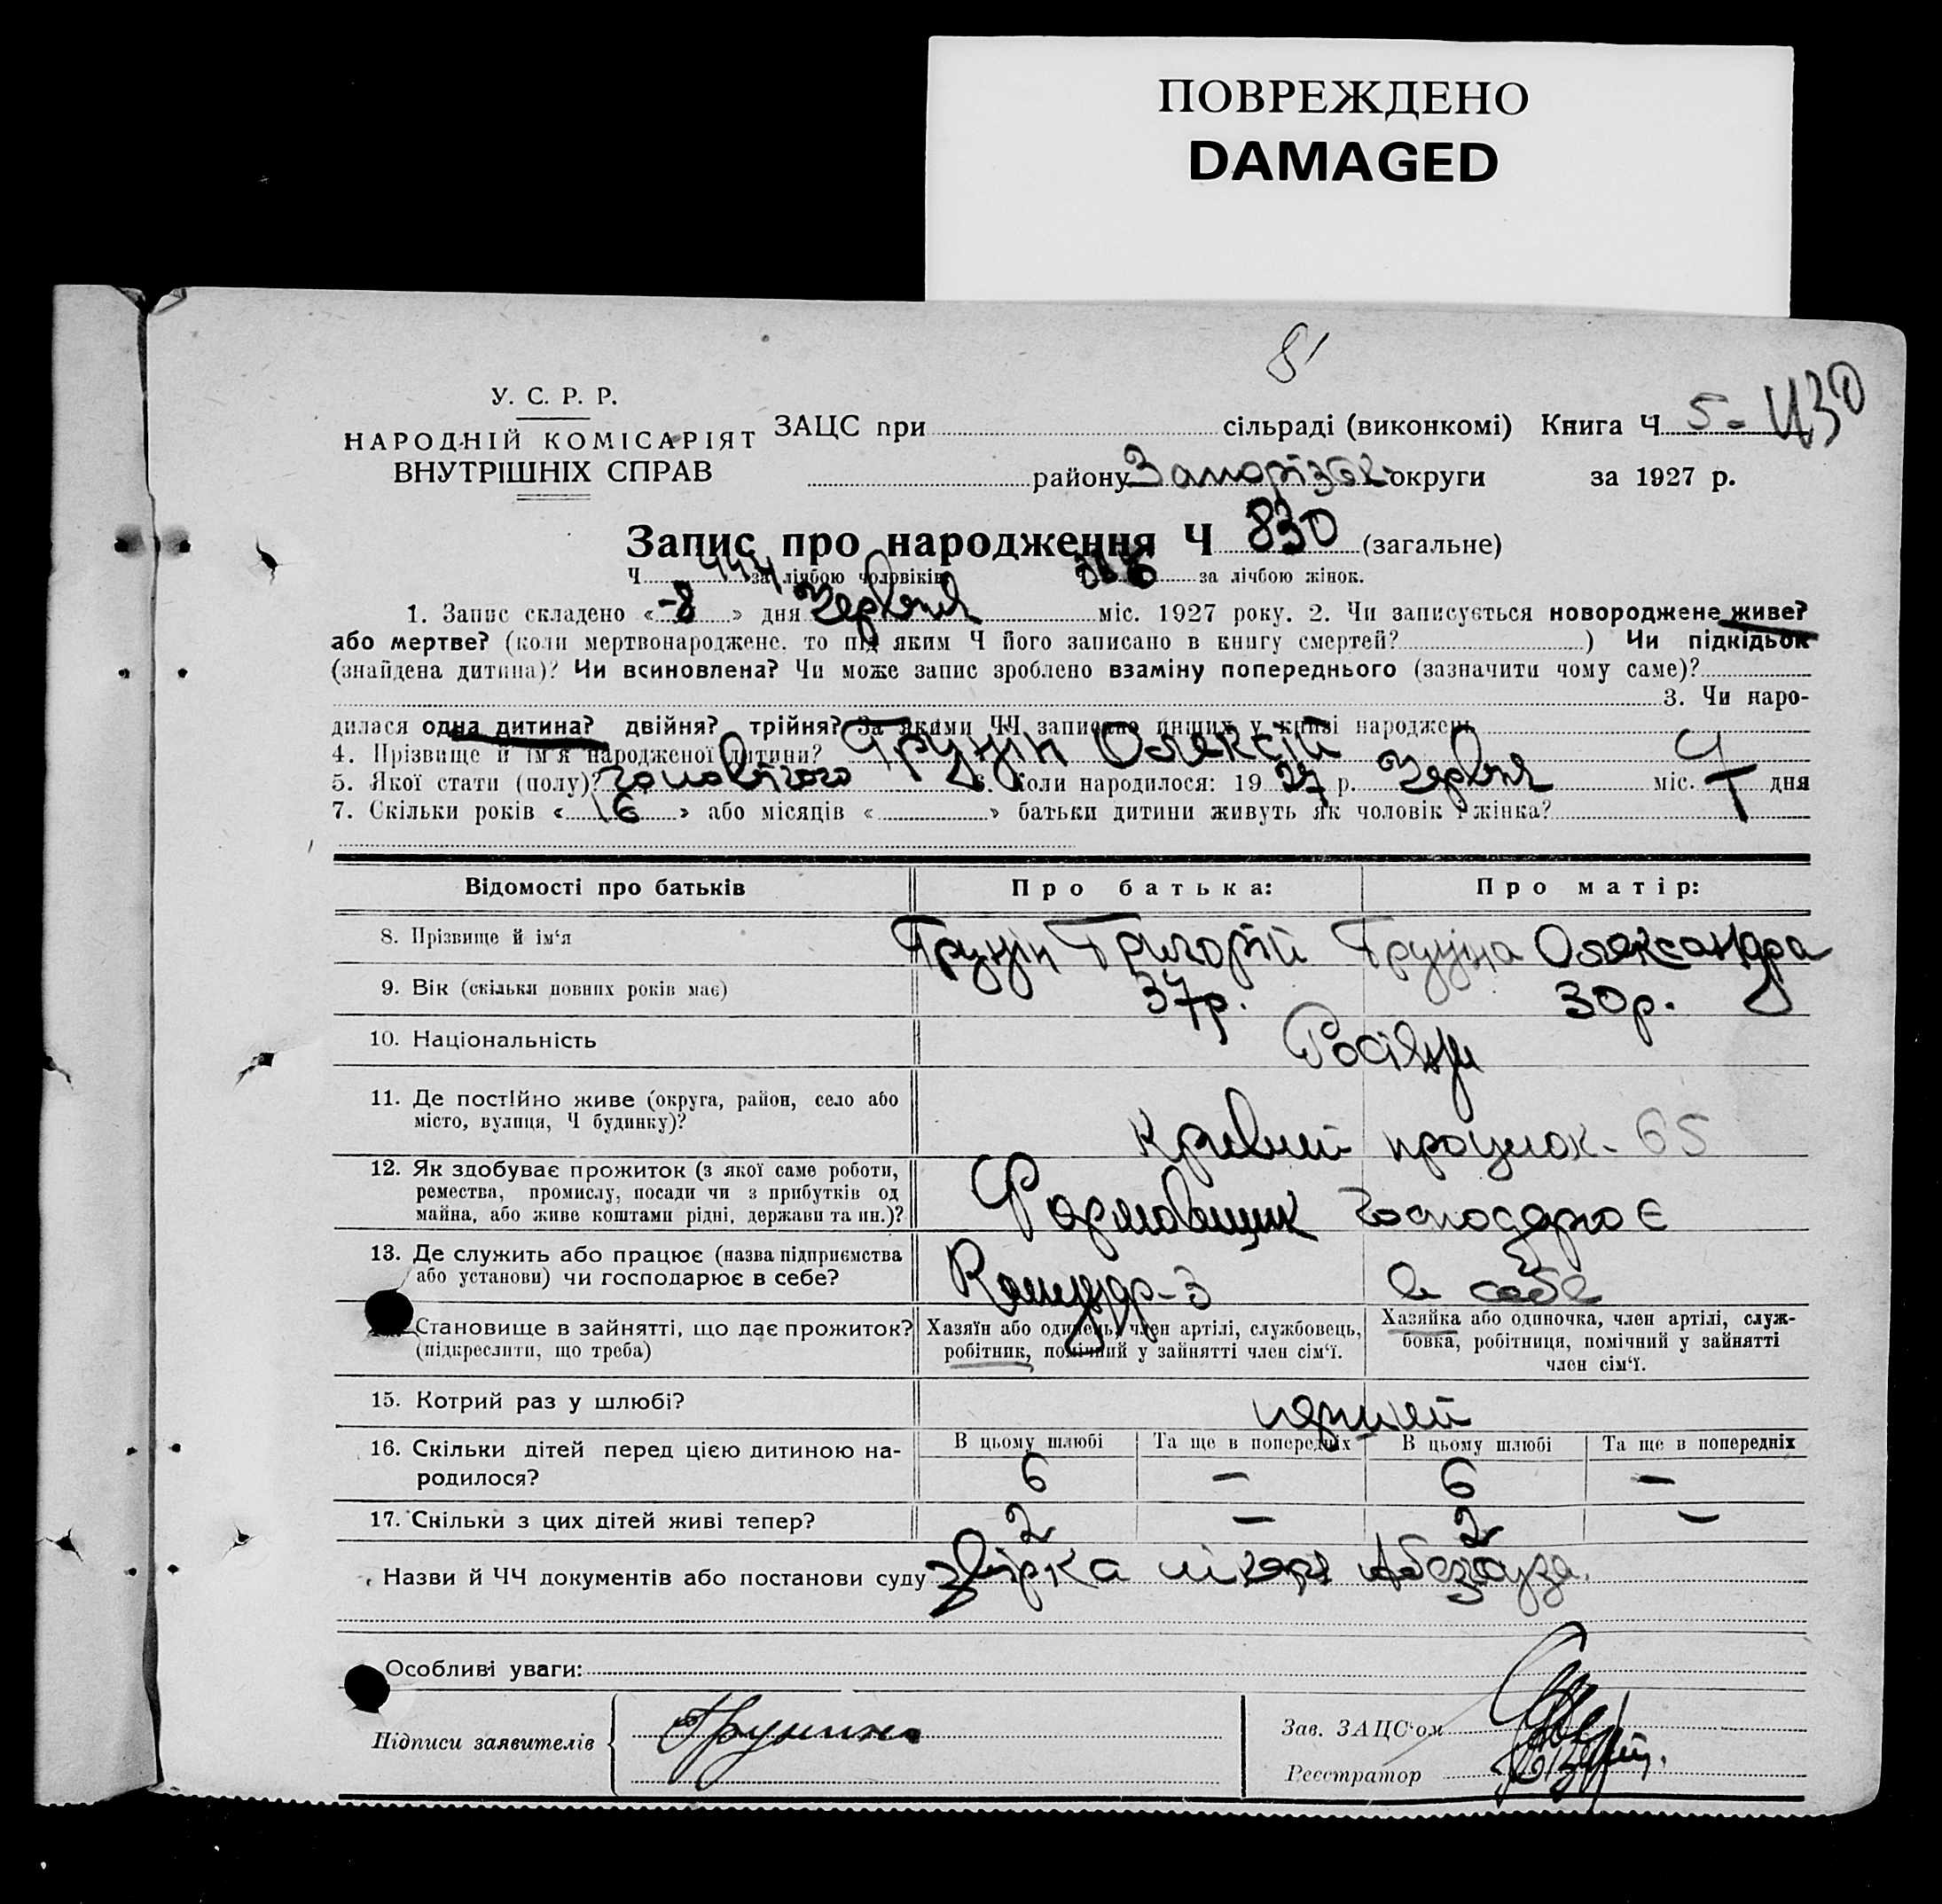 ПОВРЕЖДЕНО
DAMAGED
81
У. С. Р. Р.
НАРОДНІЙ КОМІСАРІЯТ
ВНУТРІШНІХ СПРАВ
ЗАЦС при сільраді (виконкомі) Книга Ч 5-
району Запорізьк округи за 1927 р.
Запис про народження Ч 830 (загальне)
Ч 444 за лічбою чоловіків за лічбою жінок.
1. Запис складено «8» дня Червня міс. 1927 року. 2. Чи записується новороджене живе?
або мертве? (коли мертвонароджене, то під яким Ч його записано в книгу смертей? ) Чи підкідьок
(знайдена дитина)? Чи всиновлена? Чи може запис зроблено взаміну попереднього (зазначити чому саме)?
3. Чи наро-
дилася одна дитина? двійня? трійня? За якими ЧЧ записано инших у книзі народжень
4. Прізвище й ім'я народженої дитини? Грунін Олексій
5. Якої стати (полу)? чоловічого 6. Коли народилося: 1927 р. Червня міс. 4 дня
7. Скільки років «16» або місяців « » батьки дитини живуть як чоловік і жінка?
Відомості про батьків
Про батька:
Про матір:
8. Прізвище й ім'я
Грунін Григорій
Груніна Олександра
9. Вік (скільки повних років має)
37р.
30р.
10. Національність
Росіяни
11. Де постійно живе (округа, район, село або
місто, вулиця, Ч будинку)?
Кривий проулок - 65
12. Як здобуває прожиток (з якої саме роботи,
ремества, промислу, посади чи з прибутків од
майна, або живе коштами рідні, держави та ин.)?
Формовщик
Господарює
13. Де служить або працює (назва підприємства
або установи) чи господарює в себе?
Комунар-3
в себе
Становище в зайнятті, що дає прожиток?
(підкреслити, що треба)
Хазяїн або одинець, член артілі, службовець,
робітник, помічний у зайнятті член сім'ї.
Хазяйка або одиночка, член артілі, служ-
бовка, робітниця, помічний у зайнятті
член сім'ї.
15. Котрий раз у шлюбі?
перший
16. Скільки дітей перед цією дитиною на-
родилося?
В цьому шлюбі
Та ще в попередніх
В цьому шлюбі
Та ще в попередніх
6 — 6 —
17. Скільки з цих дітей живі тепер?
2 — 2 —
Назви й ЧЧ документів або постанови суду звірка лікаря Абезгауза.
Особливі уваги:
Підписи заявителів
Зав. ЗАЦС'ом
Реєстратор